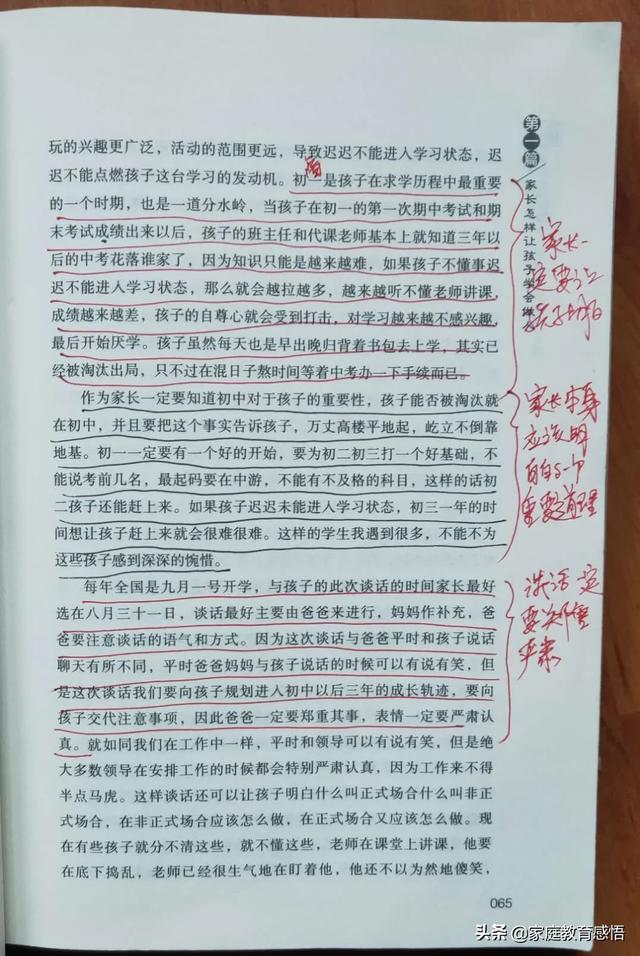 第一篇
家长怎样让孩子学会
玩的兴趣更广泛，活动的范围更远，导致迟迟不能进入学习状态，迟
迟不能点燃孩子这台学习的发动机。初一是孩子在求学历程中最重要
的一个时期，也是一道分水岭，当孩子在初一的第一次期中考试和期
末考试成绩出来以后，孩子的班主任和代课老师基本上就知道三年以
后的中考花落谁家了，因为知识只能是越来越难，如果孩子不懂事迟
迟不能进入学习状态，那么就会越拉越多，越来越听不懂老师讲课，
成绩越来越差，孩子的自尊心就会受到打击，对学习越来越不感兴趣，
最后开始厌学。孩子虽然每天也是早出晚归背着书包去上学，其实已
经被淘汰出局，只不过在混日子熬时间等着中考办一下手续而已。
作为家长一定要知道初中对于孩子的重要性，孩子能否被淘汰就
在初中，并且要把这个事实告诉孩子，万丈高楼平地起，屹立不倒靠
地基。初一一定要有一个好的开始，要为初二初三打一个好基础，不
能说考前几名，最起码要在中游，不能有不及格的科目，这样的话初
二孩子还能赶上来。如果孩子迟迟未能进入学习状态，初三一年的时
间想让孩子赶上来就会很难很难。这样的学生我遇到很多，不能不为
这些孩子感到深深的惋惜。
每年全国是九月一号开学，与孩子的此次谈话的时间家长最好
选在八月三十一日，谈话最好主要由爸爸来进行，妈妈作补充，爸
爸要注意谈话的语气和方式。因为这次谈话与爸爸平时和孩子说话
聊天有所不同，平时爸爸妈妈与孩子说话的时候可以有说有笑，但
是这次谈话我们要向孩子规划进入初中以后三年的成长轨迹，要向
孩子交代注意事项，因此爸爸一定要郑重其事，表情一定要严肃认
真。就如同我们在工作中一样，平时和领导可以有说有笑，但是绝
大多数领导在安排工作的时候都会特别严肃认真，因为工作来不得
半点马虎。这样谈话还可以让孩子明白什么叫正式场合什么叫非正
式场合，在非正式场合应该怎么做，在正式场合又应该怎么做。现
在有些孩子就分不清这些，就不懂这些，老师在课堂上讲课，他要
在底下捣乱，老师已经很生气地在盯着他，他还不以为然地傻笑，
家长一
定要让
孩子明白
家长本身
应该明
白的一个
重要道理
谈话一定
要郑重
严肃
065
头条 @家庭教育感悟